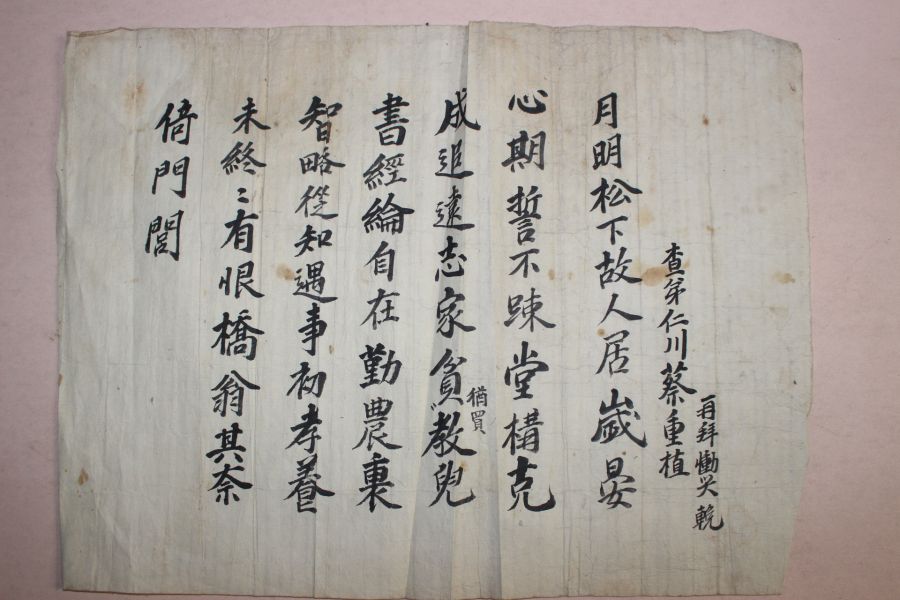 查弟仁川蔡重植再拜慟哭輓
月明松下故人居歲晏
心期誓不踈堂構克
成追遠志家貧猶買教兒
書經綸自在勤農裏
智略從知遇事初孝養
未終〻有恨橋翁其奈
倚門閭